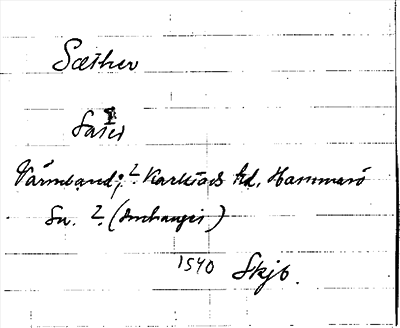 Sæther
Värmland; ? Karlstads hd, Hammarö
Sn. ? (
1540 Skjb.